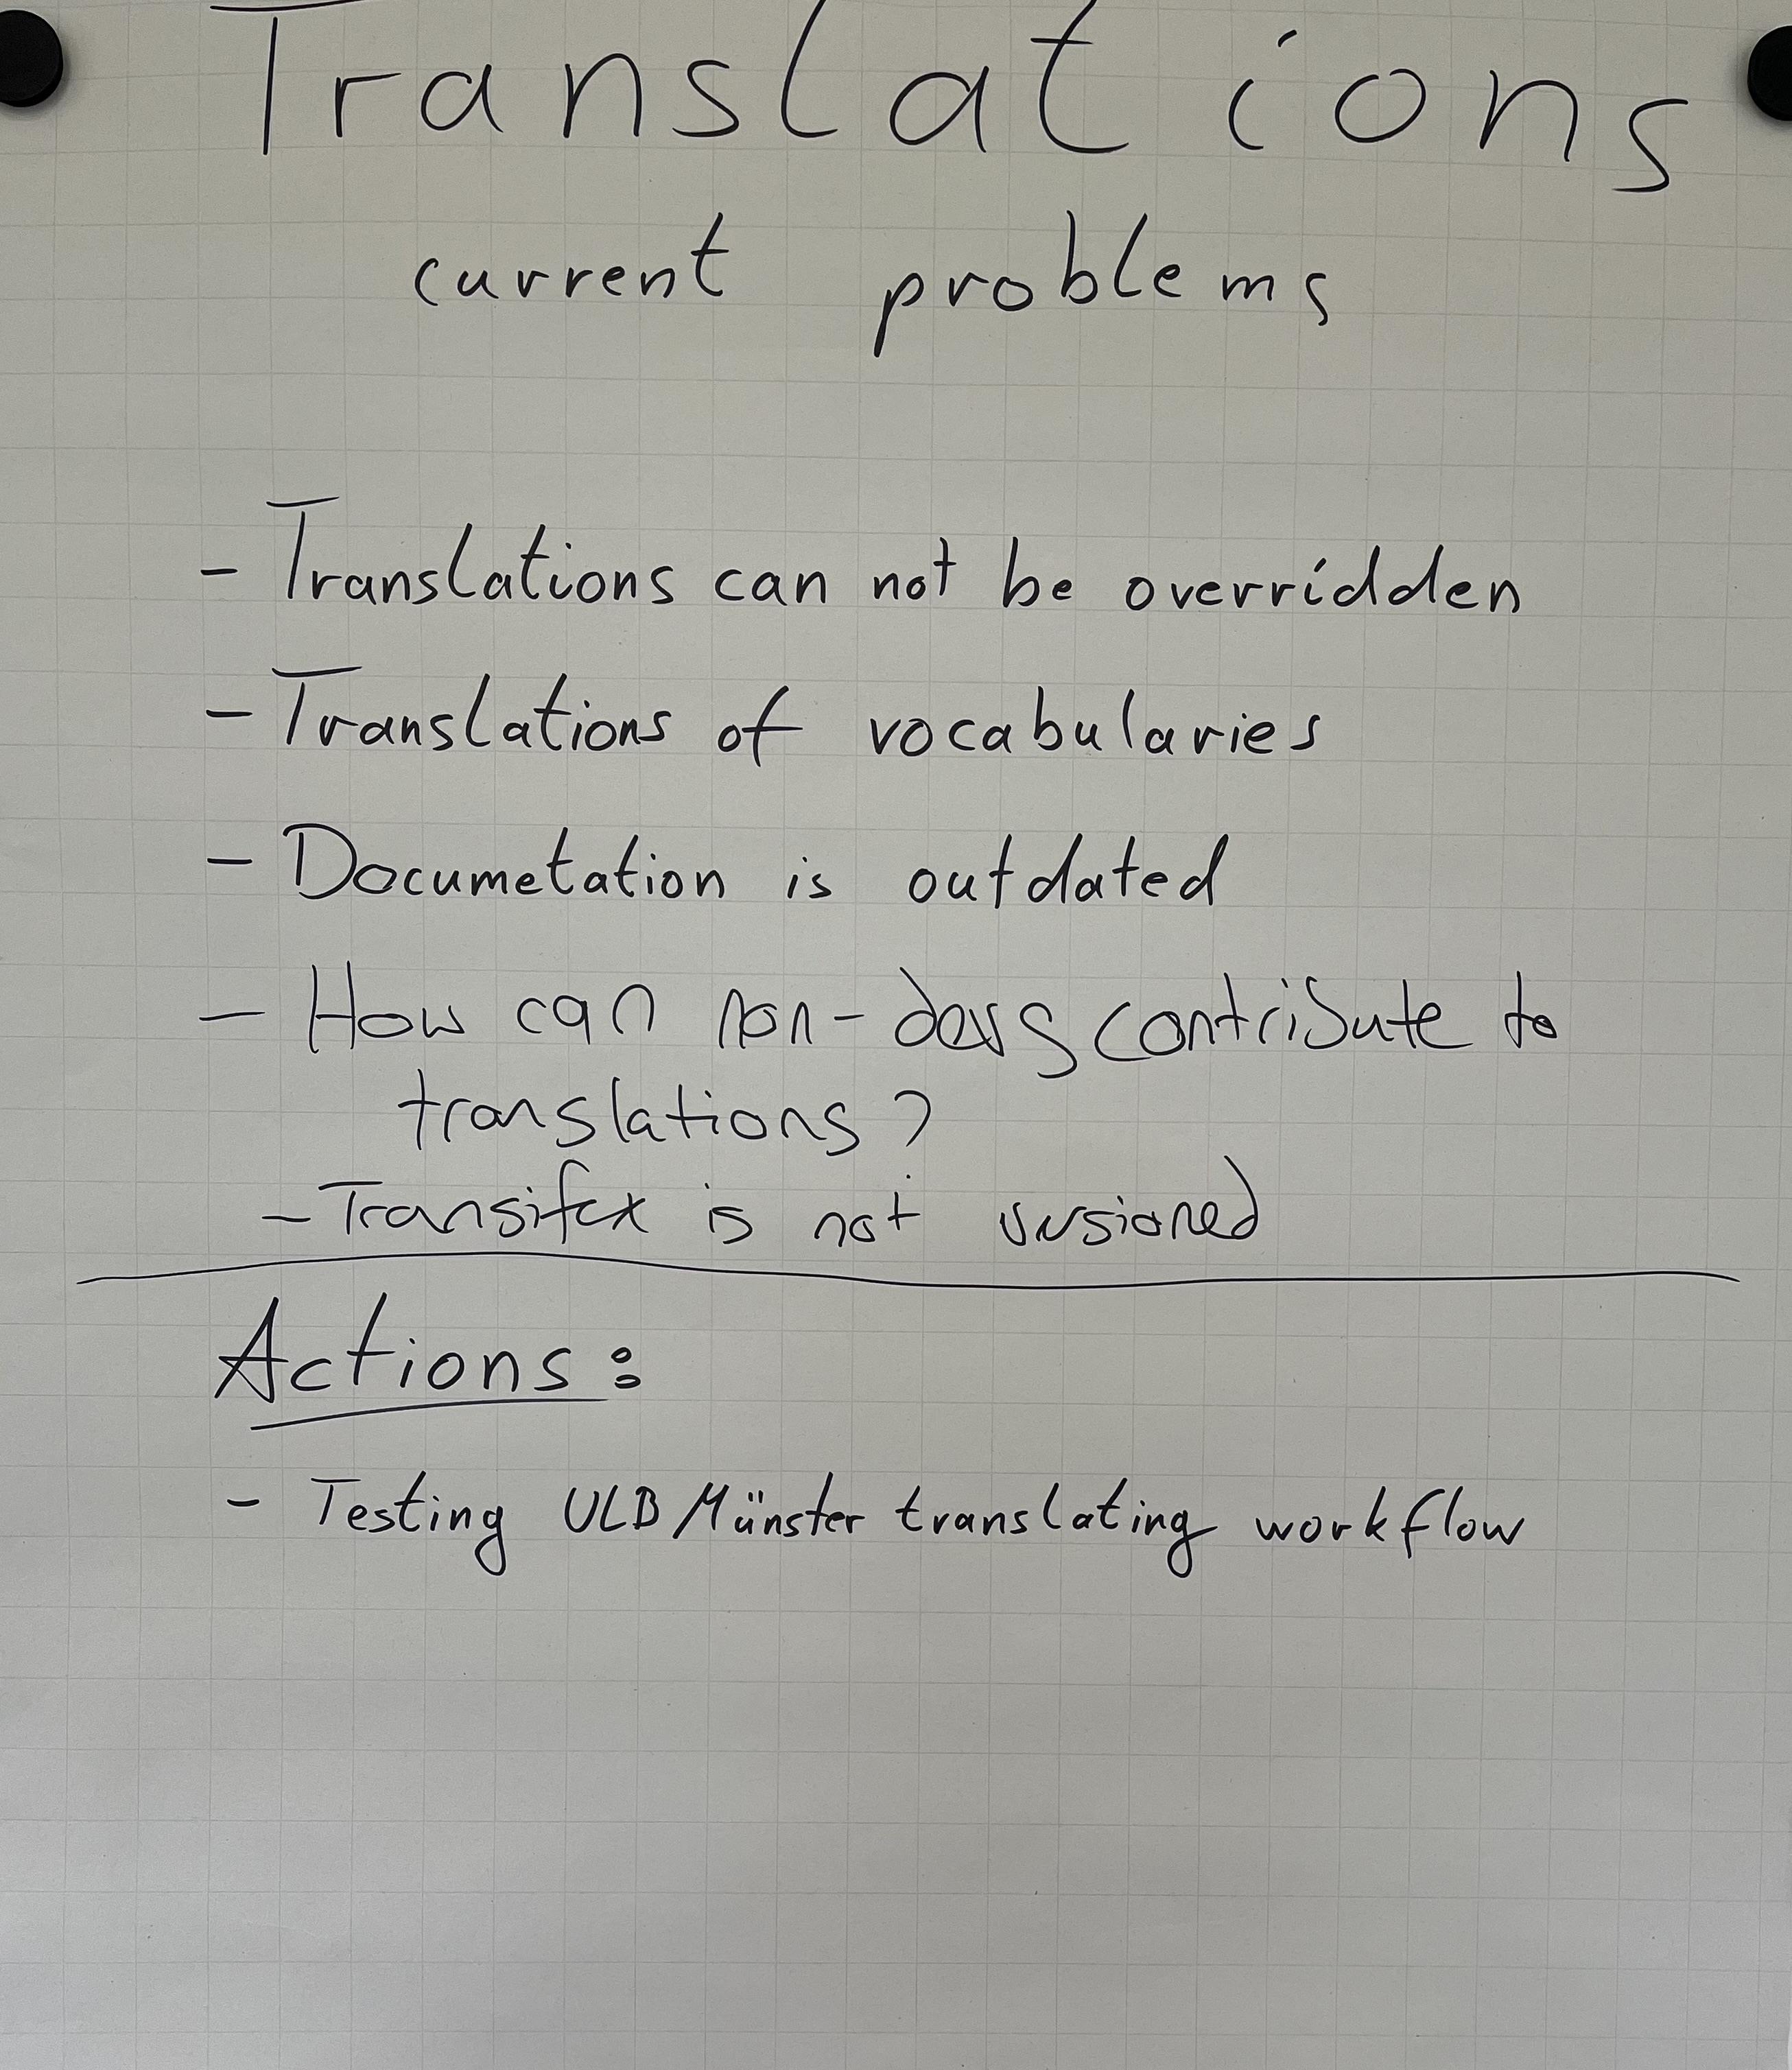 Translations
current problems
- Translations can not be overridden
- Translations of vocabularies
- Documetation is outdated
- How can non-devs contribute to
translations?
- Transifex is not versioned
Actions:
- Testing ULB Münster translating workflow